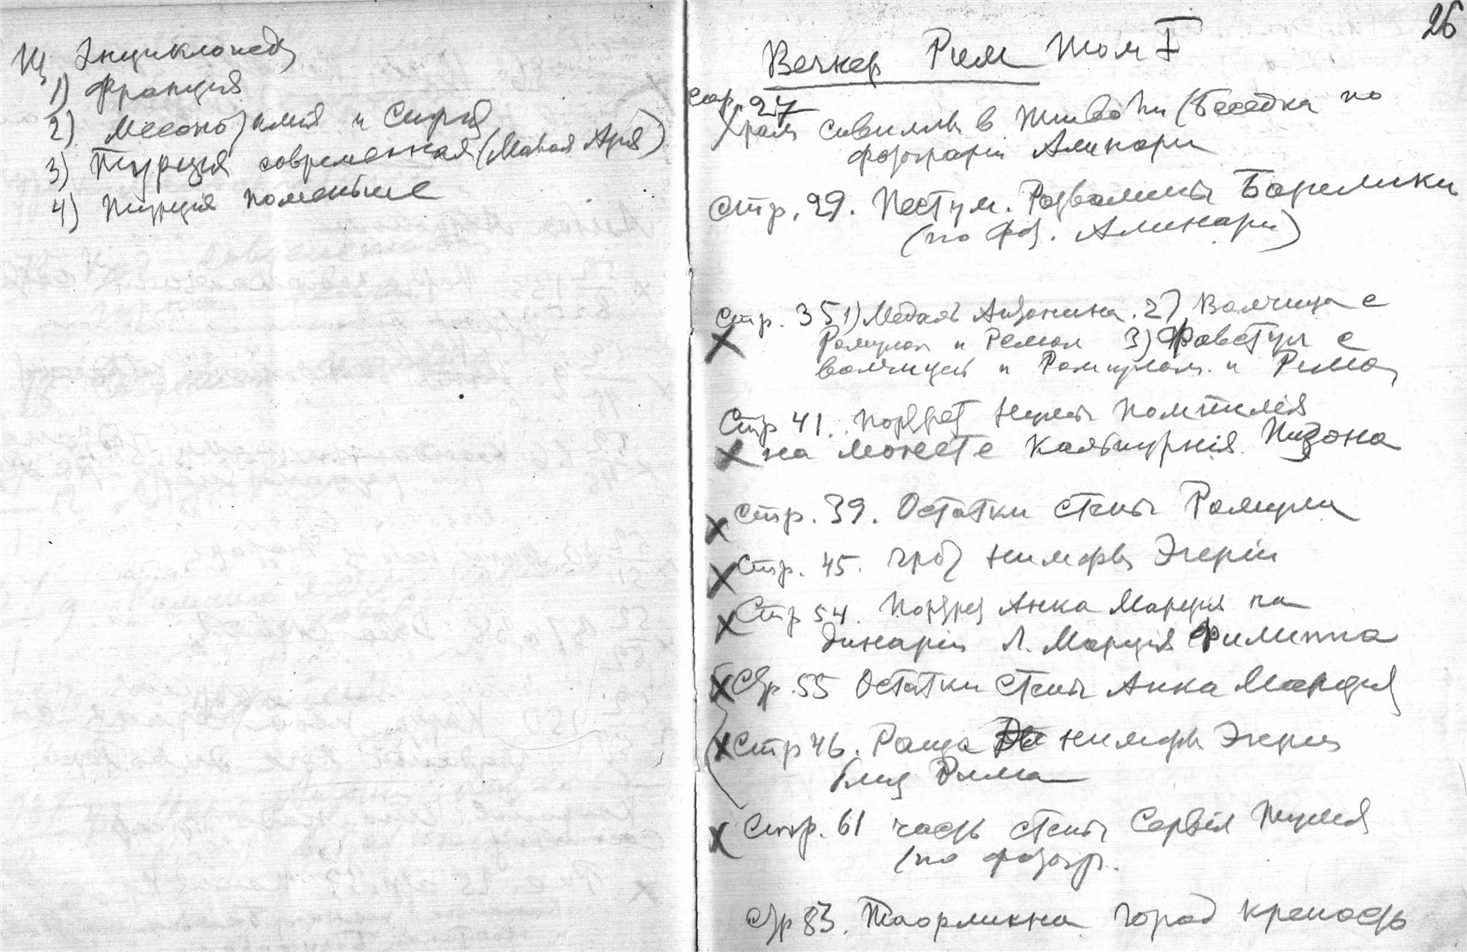 Из Энциклопед
1) Франция
2) Месопотамия и Сирия
3) Турция современная (Малая Азия)
4) Турция поменьше
26
Вегнер Рим том I
стр. 27
Храм Сивиллы в Тиволи (беседка по
фотографии Алинари
Стр. 29. Пестум. Развалины Базилики
(по фот. Алинари)
Стр. 35 1) Медаль Антонина. 2) Волчица с
Ромулом и Ремом 3) Фавстул с
волчицей и Ромулом и Ремом
Стр 41. портрет Нумы Помпилія
на монете Кальпурнія Пизона
Стр. 39. Остатки стены Ромула
Стр. 45. грот нимфы Эгеріи
Стр 54. Портрет Анка Марция на
динаріи Л. Марция Филиппа
Стр. 55 Остатки стены Анка Марция
Стр 46. Роща нимфы Эгеріи
близ Рима
Стр. 61 часть стены Сервія Тулія
(по фотогр.
Стр 83. Таормина город крепость